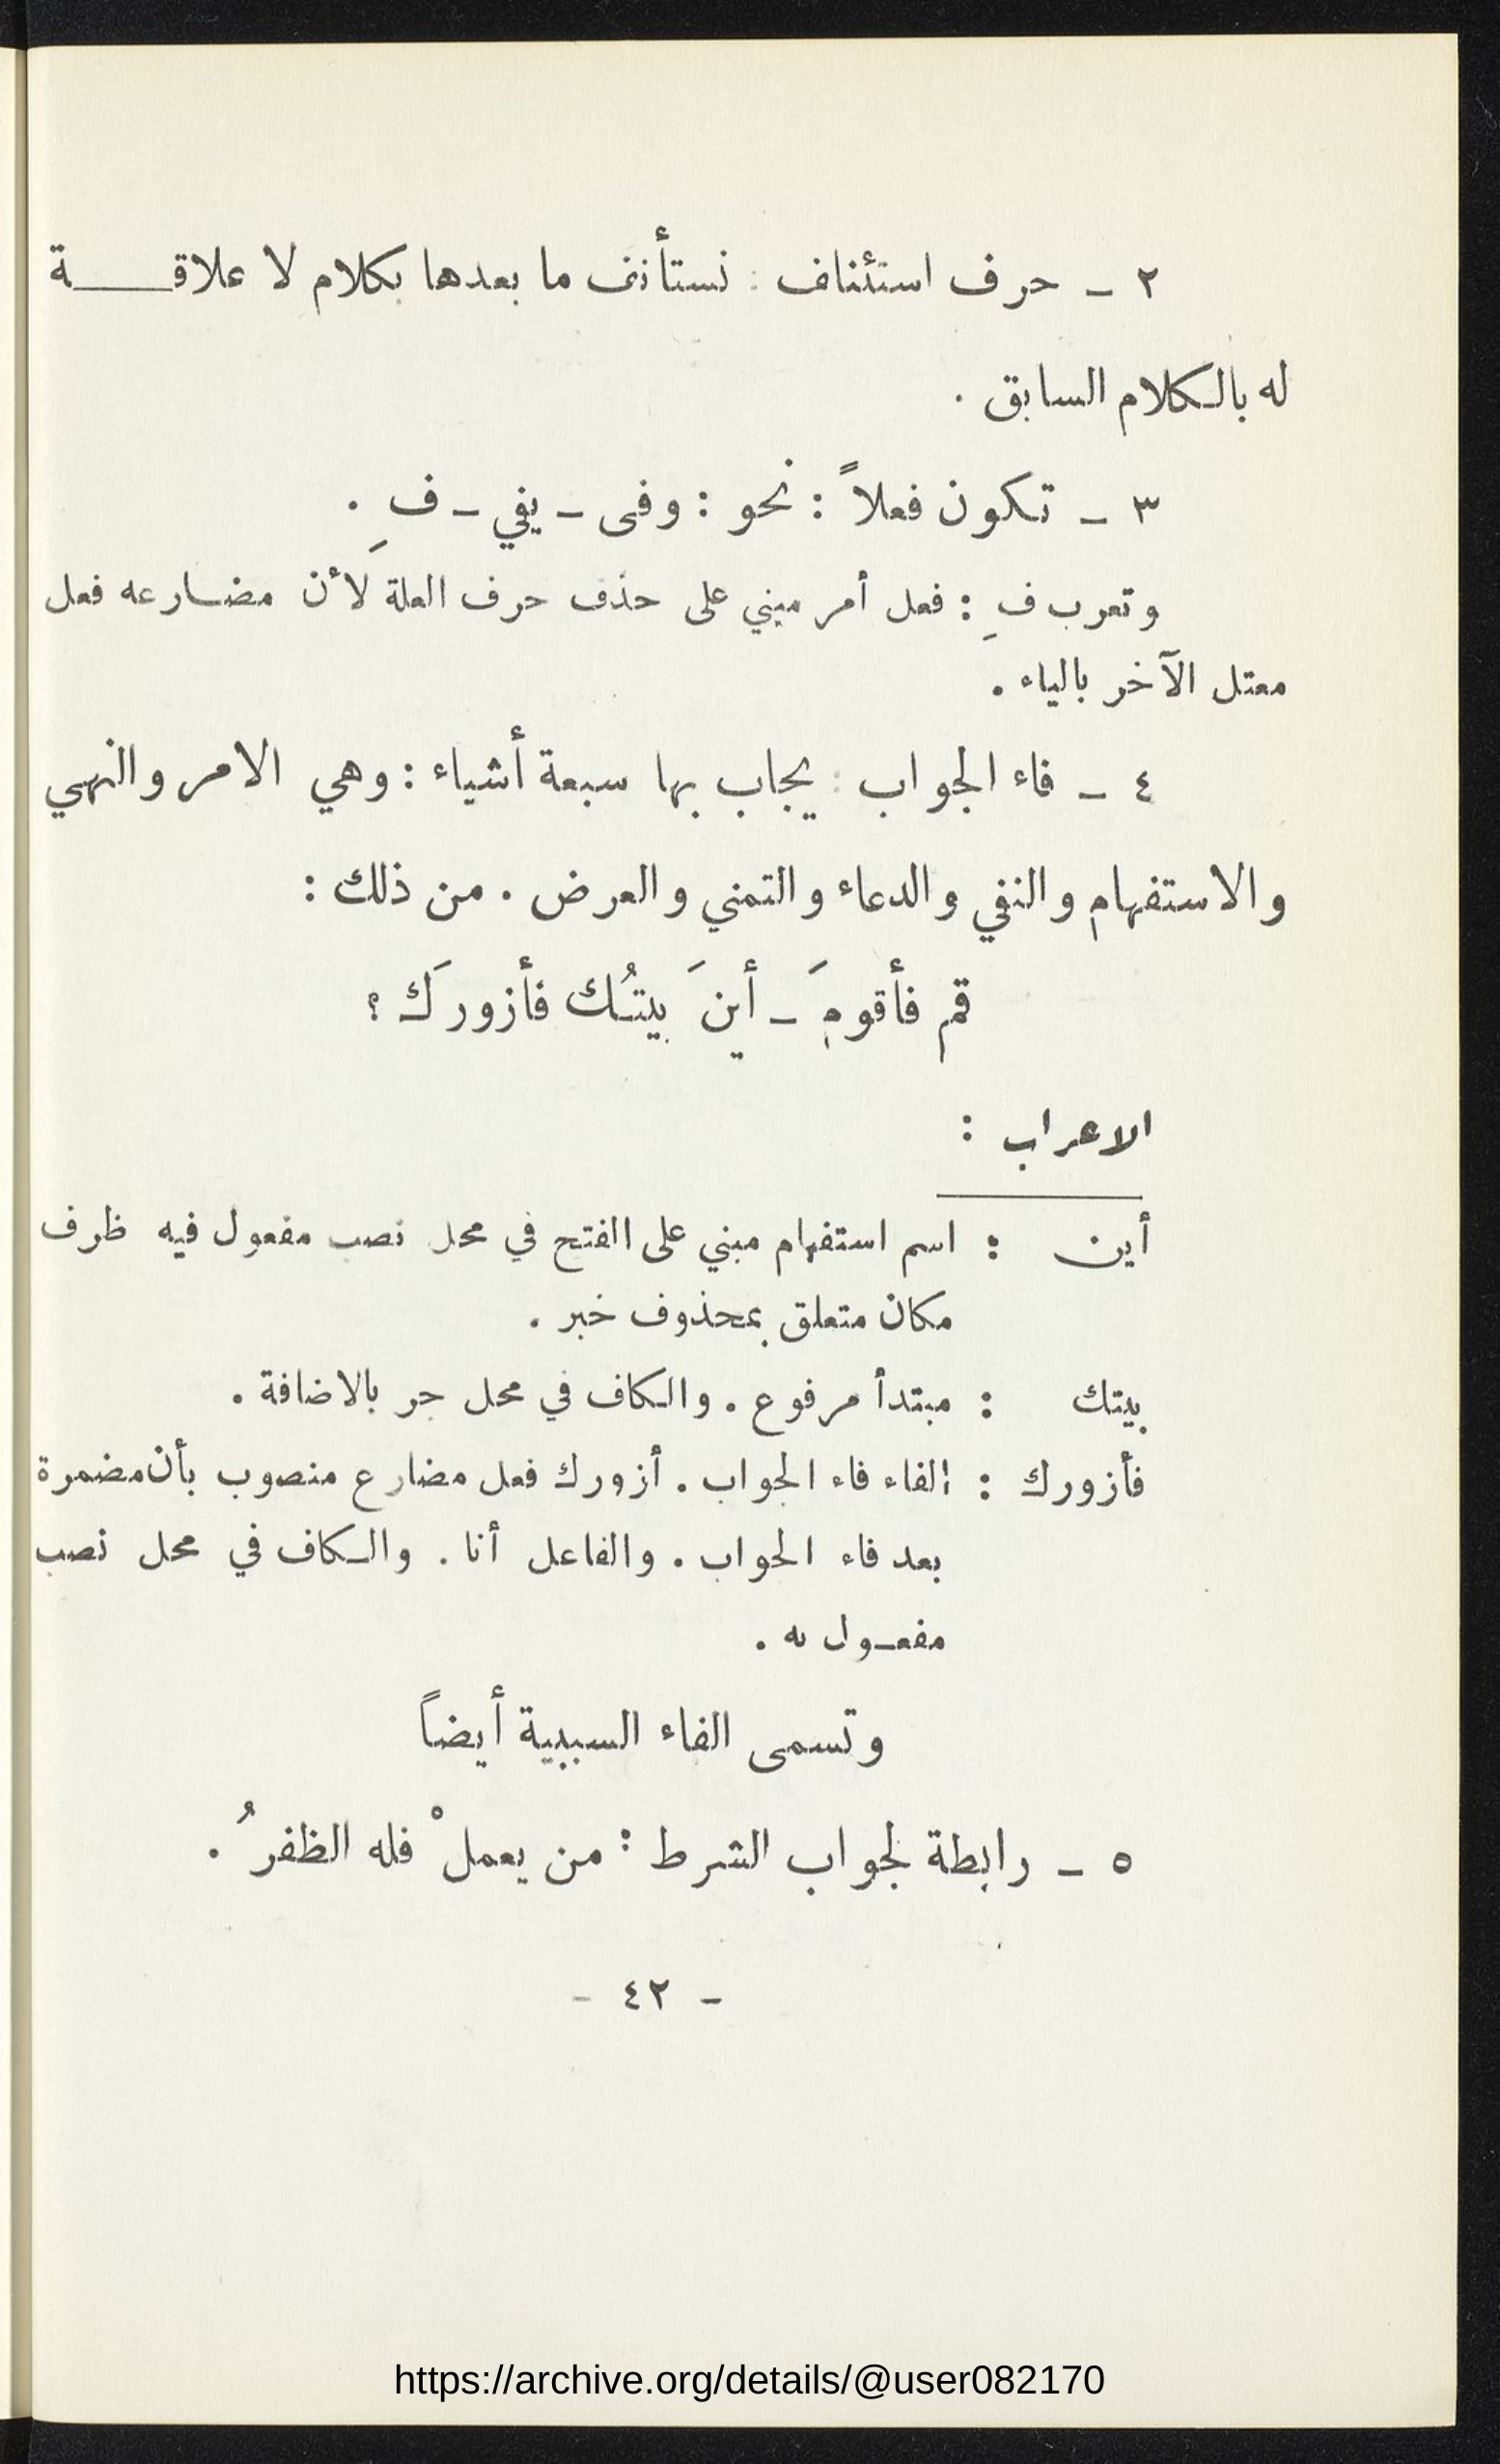 ٢ ـ حرف استئناف : نستأنف ما بعدها بكلام لا علاقـــــة
له بالكلام السابق .
٣ ـ تكون فعلاً : نحو : وفى ـ يفي ـ فِ .
وتعرب فِ : فعل أمر مبني على حذف حرف العلة لأن مضارعه فعل
معتل الآخر بالياء .
٤ ـ فاء الجواب : يجاب بها سبعة أشياء : وهي الامر والنهي
والاستفهام والنفي والدعاء والتمني والعرض . من ذلك :
قم فأقومَ ـ أينَ بيتُك فأزورَك ؟
الاعراب :
أين : اسم استفهام مبني على الفتح في محل نصب مفعول فيه ظرف
مكان متعلق بمحذوف خبر .
بيتك : مبتدأ مرفوع . والكاف في محل جر بالاضافة .
فأزورك : الفاء فاء الجواب . أزورك فعل مضارع منصوب بأن مضمرة
بعد فاء الجواب . والفاعل أنا . والكاف في محل نصب
مفعـول به .
وتسمى الفاء السببية أيضاً
٥ ـ رابطة لجواب الشرط : من يعملْ فله الظفرُ .
- ٤٢ -
https://archive.org/details/@user082170